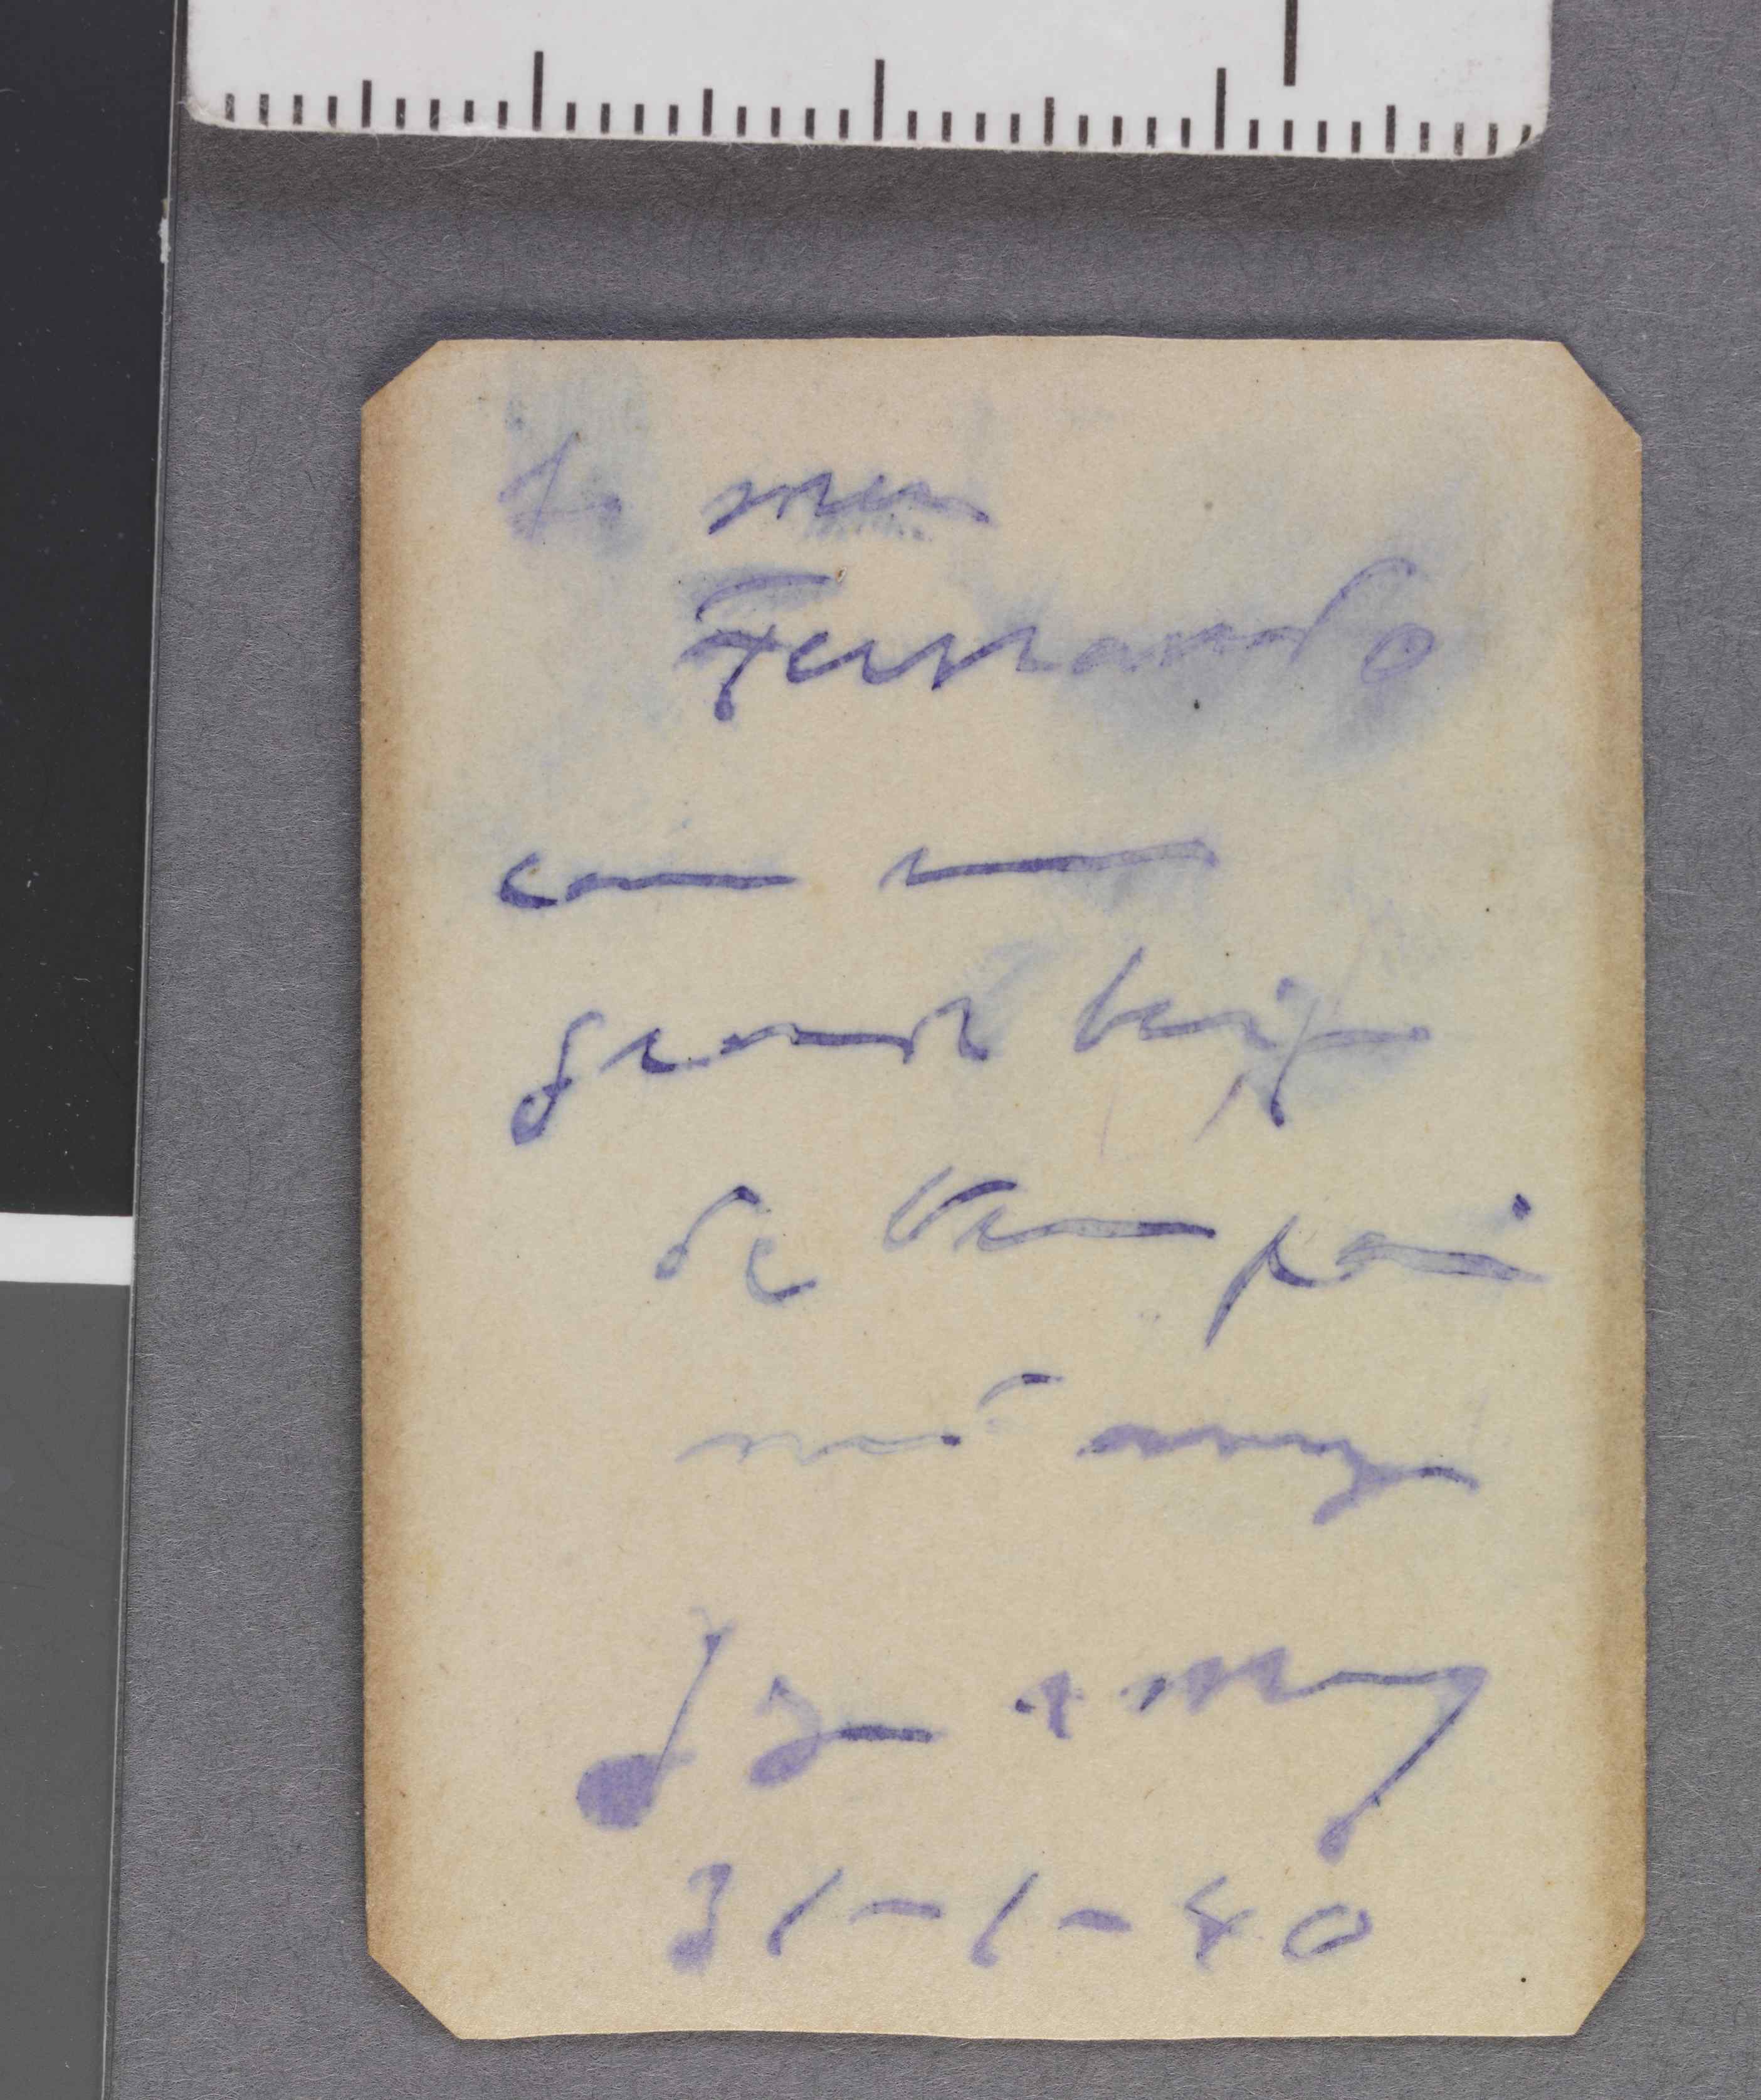 Ao meu
Fernando
com um
grande beijo
do teu pai
mt.º amigo
31-1-40